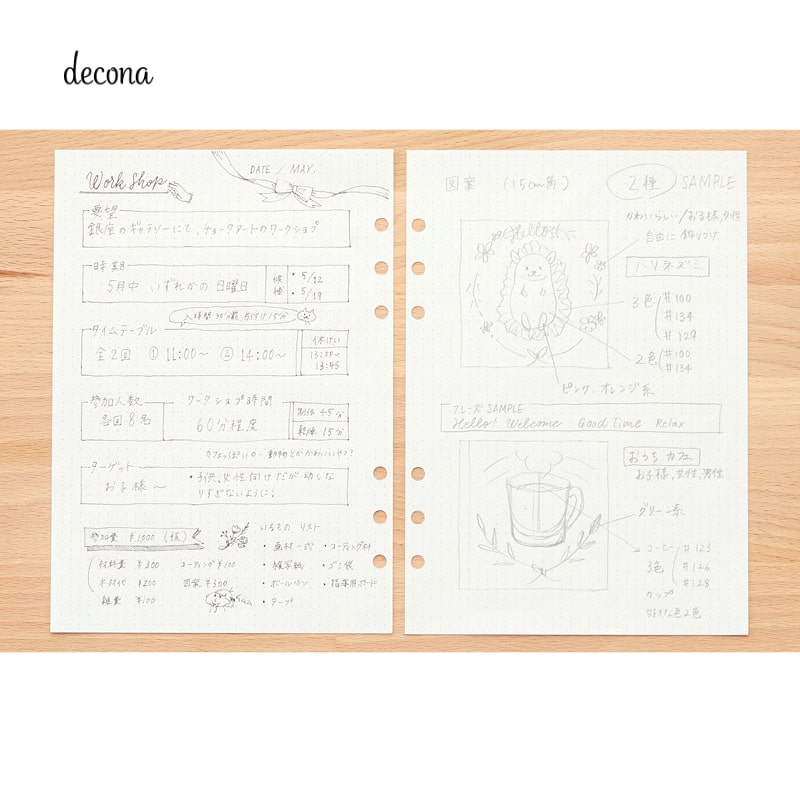 decona
Work Shop
DATE / MAY.
要望
銀座のギャラリーにて、チョークアートのワークショップ
時期
5月中 いずれかの日曜日
候補
・5/12
・5/19
タイムテーブル
全2回 ① 11:00〜 ② 14:00〜
13:00〜
13:45
参加人数
各回8名
ワークショップ時間
60分程度
制作 45分
乾燥 15分
カフェっぽいの 動物とかかわいいやつ?
ターゲット
お子様〜
・子供、女性向けだが幼くな
りすぎないように!
参加費 ¥1,000 (仮)
材料費 ¥300
コーティング ¥100
木材代 ¥200
図案 ¥300
雑費 ¥100
いるもの リスト
・画材一式
・コーティング材
・複写紙
・ゴミ袋
・ボールペン
・指導用ボード
・テープ
図案 (15cm角)
2種 SAMPLE
かわいらしい/お子様,女性
自由に飾りつけ
Hello!!
ハリネズミ
3色
#100
#134
#129
2色
#100
#134
ピンク、オレンジ系
フレーズ SAMPLE
Hello! Welcome Good Time Relax
おうち カフェ
お子様,女性,男性
グリーン系
コーヒー
3色
#123
#126
#128
カップ
好きな色2色